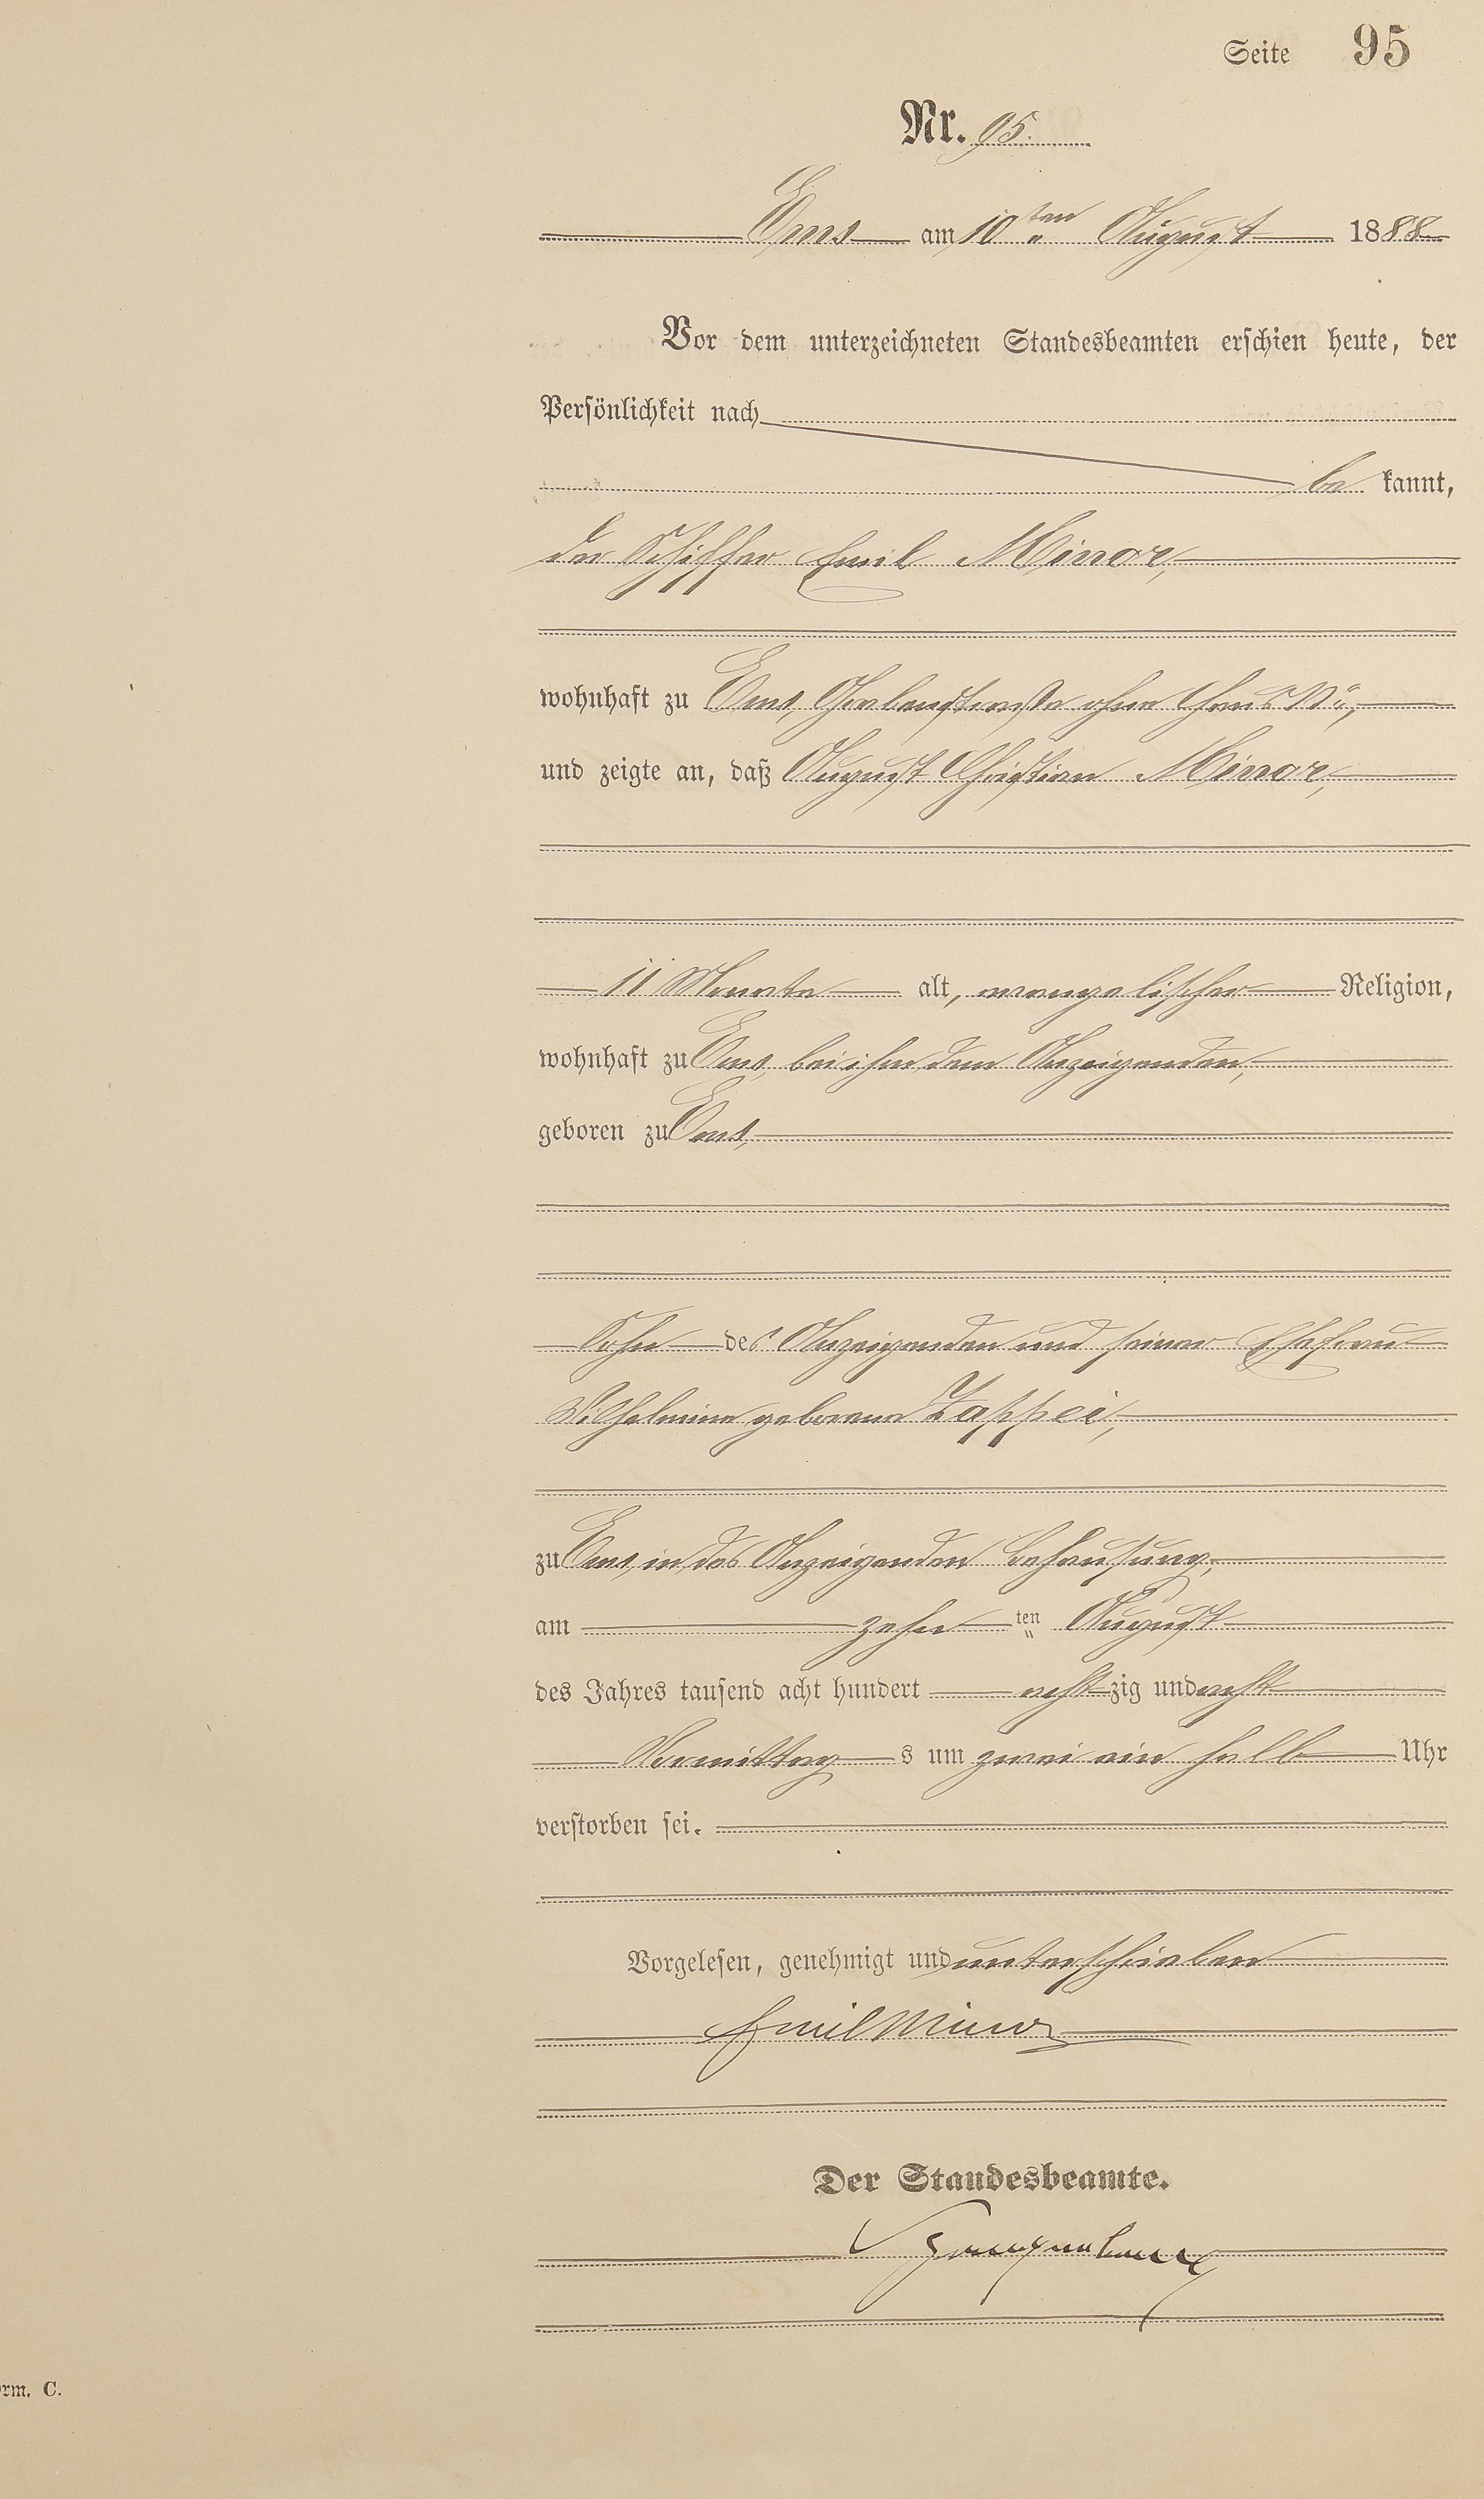 Seite 95
Nr. 95.
Ems am 10ten August 1888
Vor dem unterzeichneten Standesbeamten erschien heute, der
Persönlichkeit nach
be kannt,
der Schiffer Emil Minor,
wohnhaft zu Ems, ohne Haus No,
und zeigte an, daß August Christian Minor,
11 Monate alt, evangelischer Religion,
wohnhaft zu Ems, bei ihm, dem Anzeigenden,
geboren zu Ems,
Sohn des Anzeigenden und seiner Ehefrau
Wilhelmine geborene Zappei,
zu Ems, in des Anzeigenden Behausung,
am zehn ten August
des Jahres tausend acht hundert acht zig und acht
Vormittag s um zwei ein halb Uhr
verstorben sei.
Vorgelesen, genehmigt und unterschrieben
Emil Minor
Der Standesbeamte.
orm. C.